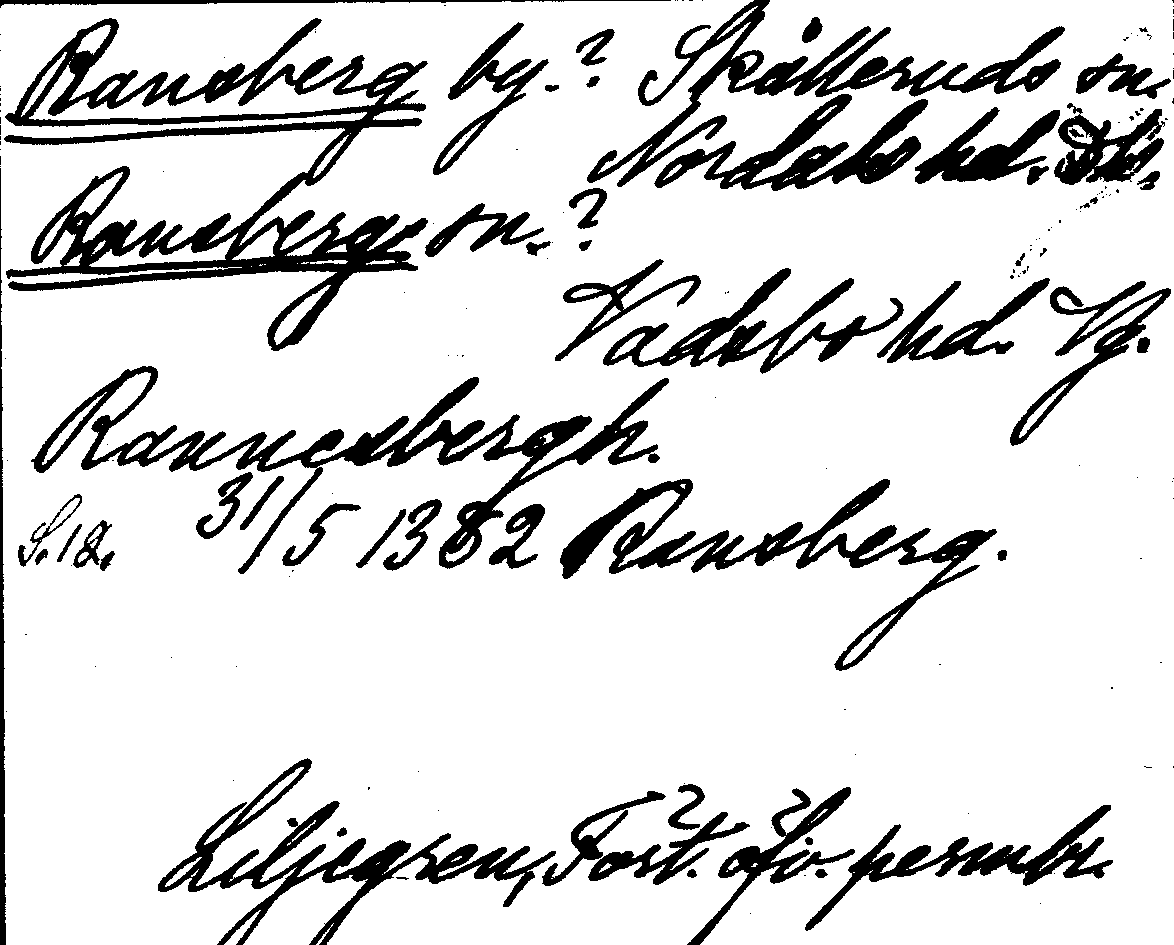 Ransberg by.? Skålleruds sn.
Nordals hd. Dls.
Ransberg sn.?
Vadsbo hd. Vg.
Rannesbergh.
S. 12. 31/5 1382 Ransberg.
Liljegren, Fört. öfv. permbr.